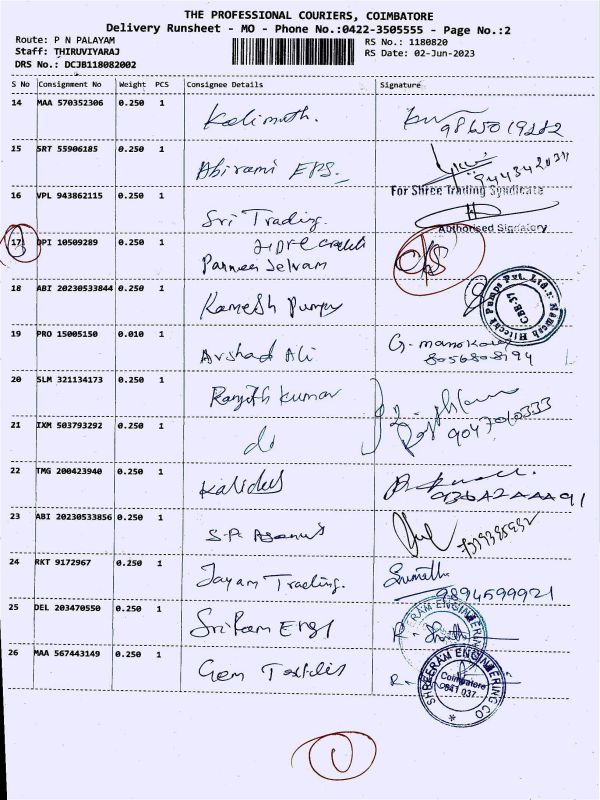 THE PROFESSIONAL COURIERS, COIMBATORE
Delivery Runsheet - MO - Phone No.:0422-3505555 - Page No.:2
Route: P N PALAYAM
Staff: THIRUVIYARAJ
DRS No.: DCJB118082002
RS No.: 1180820
RS Date: 02-Jun-2023
S No Consignment No Weight PCS Consignee Details Signature
14 MAA 570352306 0.250 1 Kalimuth.
15 SRT 55906185 0.250 1 Abirami EPS.
16 VPL 943862115 0.250 1 Sri Trading.
For Shree Trading Syndicate
Authorised Signatory
17 OPI 10509289 0.250 1 HDFC
Selvam
18 ABI 20230533844 0.250 1 Kamesh Pumps
19 PRO 15005150 0.010 1 Arshad Ali
8056808194
20 SLM 321134173 0.250 1 Ranjith Kumar
21 IXM 503793292 0.250 1 do
22 TMG 200423940 0.250 1 Kalidas
23 ABI 20230533856 0.250 1 S.P.
24 RKT 9172967 0.250 1 Jayam Trading. Sumathi
9894599921
25 DEL 203470550 0.250 1 SriRam Engg
26 MAA 567443149 0.250 1 Gem Textiles
SHREERAM ENGINEERING CO
Coimbatore
641 037